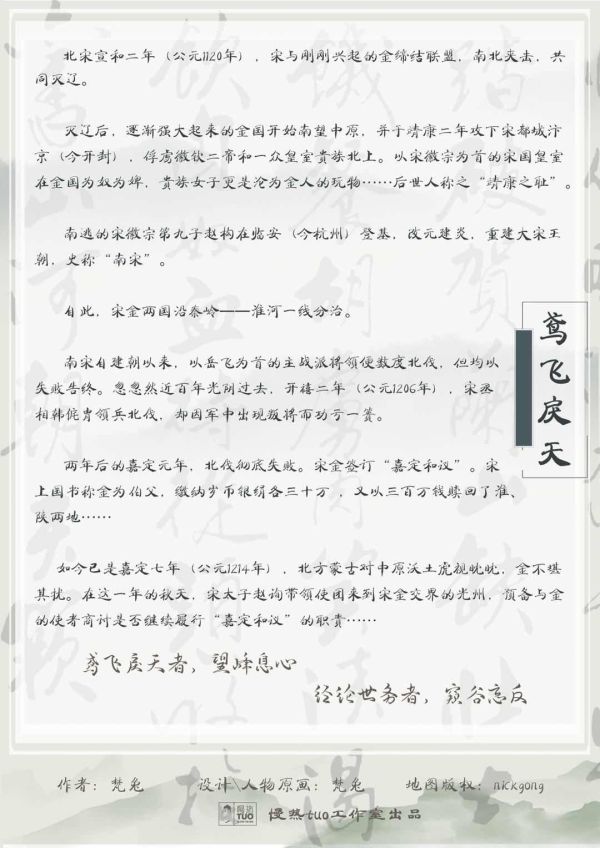 北宋宣和二年（公元1120年），宋与刚刚兴起的金缔结联盟，南北夹击，共
同灭辽。
灭辽后，逐渐强大起来的金国开始南望中原，并于靖康二年攻下宋都城汴
京（今开封），俘虏徽钦二帝和一众皇室贵族北上。以宋徽宗为首的宋国皇室
在金国为奴为婢，贵族女子更是沦为金人的玩物……后世人称之“靖康之耻”。
南逃的宋徽宗第九子赵构在临安（今杭州）登基，改元建炎，重建大宋王
朝，史称“南宋”。
自此，宋金两国沿秦岭——淮河一线分治。
南宋自建朝以来，以岳飞为首的主战派将领便数度北伐，但均以
失败告终。忽忽然近百年光阴过去，开禧二年（公元1206年），宋丞
相韩侂胄领兵北伐，却因军中出现叛将而功亏一篑。
两年后的嘉定元年，北伐彻底失败。宋金签订“嘉定和议”。宋
上国书称金为伯父，缴纳岁币银绢各三十万，又以三百万钱赎回了淮、
陕两地……
如今已是嘉定七年（公元1214年），北方蒙古对中原沃土虎视眈眈，金不堪
其扰。在这一年的秋天，宋太子赵询带领使团来到宋金交界的光州，预备与金
的使者商讨是否继续履行“嘉定和议”的职责……
鸢飞戾天者，望峰息心
经纶世务者，窥谷忘反
鸢飞戾天
作者：梵兔 设计\人物原画：梵兔 地图版权：nickgong
慢热tuo工作室出品